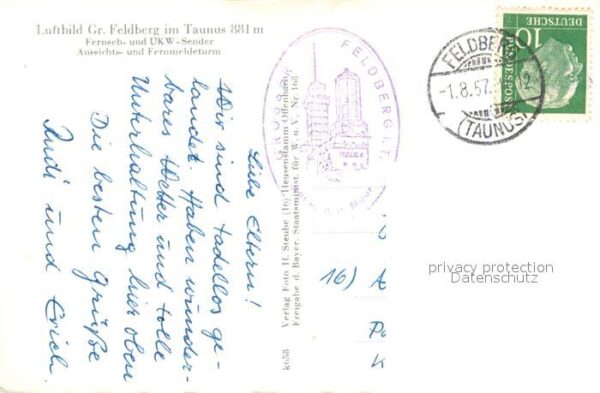 Luftbild Gr. Feldberg im Taunus 881 m
Fernseh- und UKW-Sender
Aussichts- und Fernmeldeturm
Liebe Eltern!
Wir sind tadellos ge-
landet. Haben wunder-
bares Wetter und tolle
Unterhaltung hier oben
Die besten Grüße
Rudi und Erich
k658 Verlag Foto H. Steuhe (16) Heusenstamm Offenbach
Freigabe d. Bayer. Staatsminist. für W. u. V. Nr. 168
GROSSER FELDBERG I. T.
FELDBERG
-1.8.57.
12
(TAUNUS)
10
DEUTSCHE
BUNDESPOST
16)
privacy protection
Datenschutz